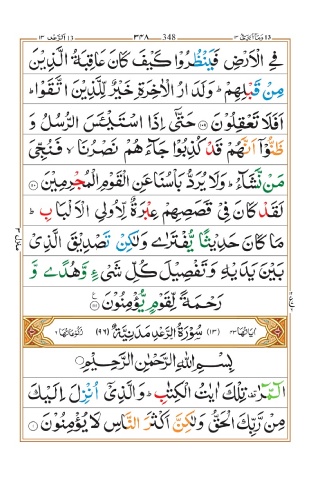 وما ابرئ ١٣ 348 ٣٤٨ الرعد ١٣
فِي الْاَرْضِ فَيَنْظُرُوْا كَيْفَ كَانَ عَاقِبَةُ الَّذِيْنَ
مِنْ قَبْلِهِمْ ؕ وَلَدَارُ الْاٰخِرَةِ خَيْرٌ لِّلَّذِيْنَ اتَّقَوْا ؕ
اَفَلَا تَعْقِلُوْنَ ﴿۱۰۹﴾ حَتّٰۤى اِذَا اسْتَيْـَٔسَ الرُّسُلُ وَ
ظَنُّوْۤا اَنَّهُمْ قَدْ كُذِبُوْا جَآءَهُمْ نَصْرُنَا ۙ فَنُجِّىَ
مَنْ نَّشَآءُ ؕ وَلَا يُرَدُّ بَاْسُنَا عَنِ الْقَوْمِ الْمُجْرِمِيْنَ ﴿۱۱۰﴾
لَقَدْ كَانَ فِيْ قَصَصِهِمْ عِبْرَةٌ لِّاُولِى الْاَلْبَابِ ؕ
مَا كَانَ حَدِيْثًا يُّفْتَرٰى وَلٰكِنْ تَصْدِيْقَ الَّذِيْ
بَيْنَ يَدَيْهِ وَتَفْصِيْلَ كُلِّ شَىْءٍ وَّهُدًى وَّ
رَحْمَةً لِّقَوْمٍ يُّؤْمِنُوْنَ ﴿۱۱۱﴾
اٰيَاتُهَا ٤٣ (١٣) سُوْرَةُ الرَّعْدِ مَدَنِيَّةٌ (٩٦) رُكُوْعَاتُهَا ٦
بِسْمِ اللّٰهِ الرَّحْمٰنِ الرَّحِيْمِ
الٓمّٓرٰ ۟ تِلْكَ اٰيٰتُ الْكِتٰبِ ؕ وَالَّذِيْۤ اُنْزِلَ اِلَيْكَ
مِنْ رَّبِّكَ الْحَقُّ وَلٰكِنَّ اَكْثَرَ النَّاسِ لَا يُؤْمِنُوْنَ ﴿۱﴾